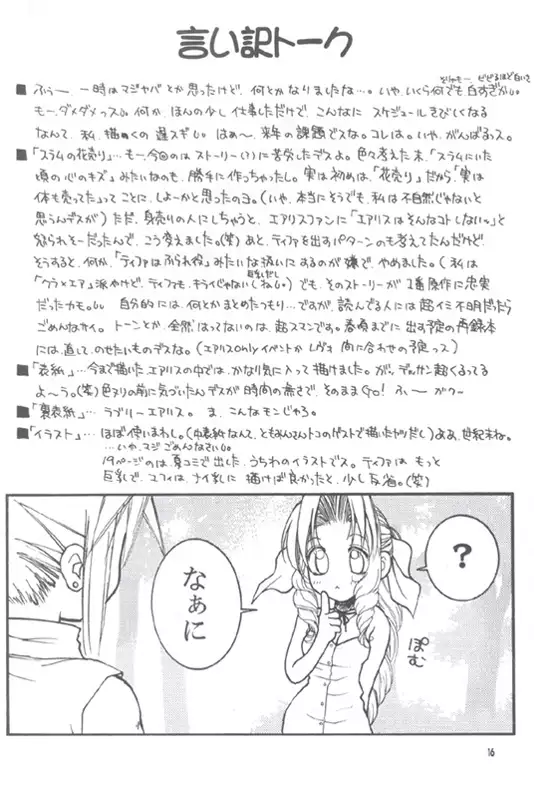 言い訳トーク
そりゃもー、ビビるほど白いて
■ ふぅー、一時はマジヤバとか思ったけど、何とかなりましたな…。いや、いくら何でも白すぎかい。
もー、ダメダメっス。何か、ほんの少し仕事しただけで、こんなに スケジュールきびしくなる
なんて、私、描くの 遅スギい。はぁ〜、来年の課題でスな。コレは。いや、がんばるっス。
■「スラムの花売り」…も〜、今回のは ストーリー(?)に苦労したデスよ。色々考えた末、「スラムにいた
頃の心のキズ」みたいなのも、勝手に作っちゃったし。実は初めは、「花売り」だから「実は
体も売ってた」ってことに、しよーかと思ったのヨ。(いや、本当にそうでも、私は不自然じゃないと
思うんデスが) ただ、身売りの人にしちゃうと、エアリスファンに「エアリスはそんなコトしないッ」と
怒られそーだったんで、こう考えました。(笑) あと、ティファを出すパターンも考えてたんだけど、
そうすると、何か、「ティファはふられ役」みたいな扱いにするのが嫌で、やめました。(私は
「クラ×エア」派やけど、ティファも、キライじゃない(
でも、そのストーリーが 1番原作に忠実
だったカモ。 自分的には、何とかまとめたつもり…ですが、読んでる人には超イミ不明だったら
ごめんなサイ。トーンとか、全然はってないのは、超スマンです。春頃までに 出す予定の再録本
には、直して、のせたいものデスな。(エアリスonlyイベントか レヴォ 向に合わせの予定っス)
■「表紙」…今まで描いたエアリスの中では、かなり気に入って描けました。が、デッサン超くるってる
よ〜う。(笑)色ヌリの前に気づいたんデスが 時間の無さで、そのままGO! ふー が
■「裏表紙」… ラブリーエアリス。 ま、こんなモンじゃろ。
■「イラスト」… ほぼ使いまわし。(中表紙なんて、ともみんさんトコのゲストで描いたヤツだし)ああ、世紀末ね。
…いや、マジごめんなさい。
19ページのは、夏コミで出した、うちわのイラストでス。ティファは もっと
巨乳で、ユフィは、ナイ乳に 描けば良かったと、少し反省。(笑)
？
なぁに
ぽむ
16